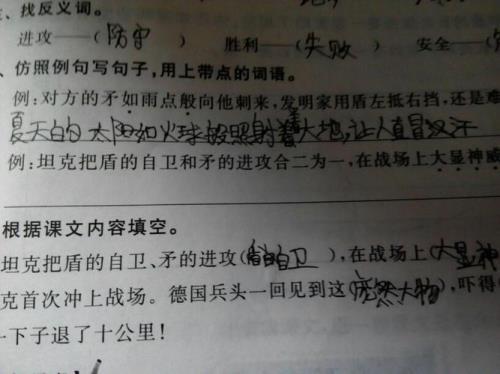 、找反义词。
进攻——(防守) 胜利—(失败) 安全—(
、仿照例句写句子,用上带点的词语。
例:对方的矛如雨点般向他刺来,发明家用盾左抵右挡,还是难
夏天的太阳如火球般照射着大地,让人直冒汗
例:坦克把盾的自卫和矛的进攻合二为一,在战场上大显神威
根据课文内容填空。
坦克把盾的自卫、矛的进攻(自卫),在战场上(大显神
克首次冲上战场。德国兵头一回见到这(庞然大物),吓得
一下子退了十公里!